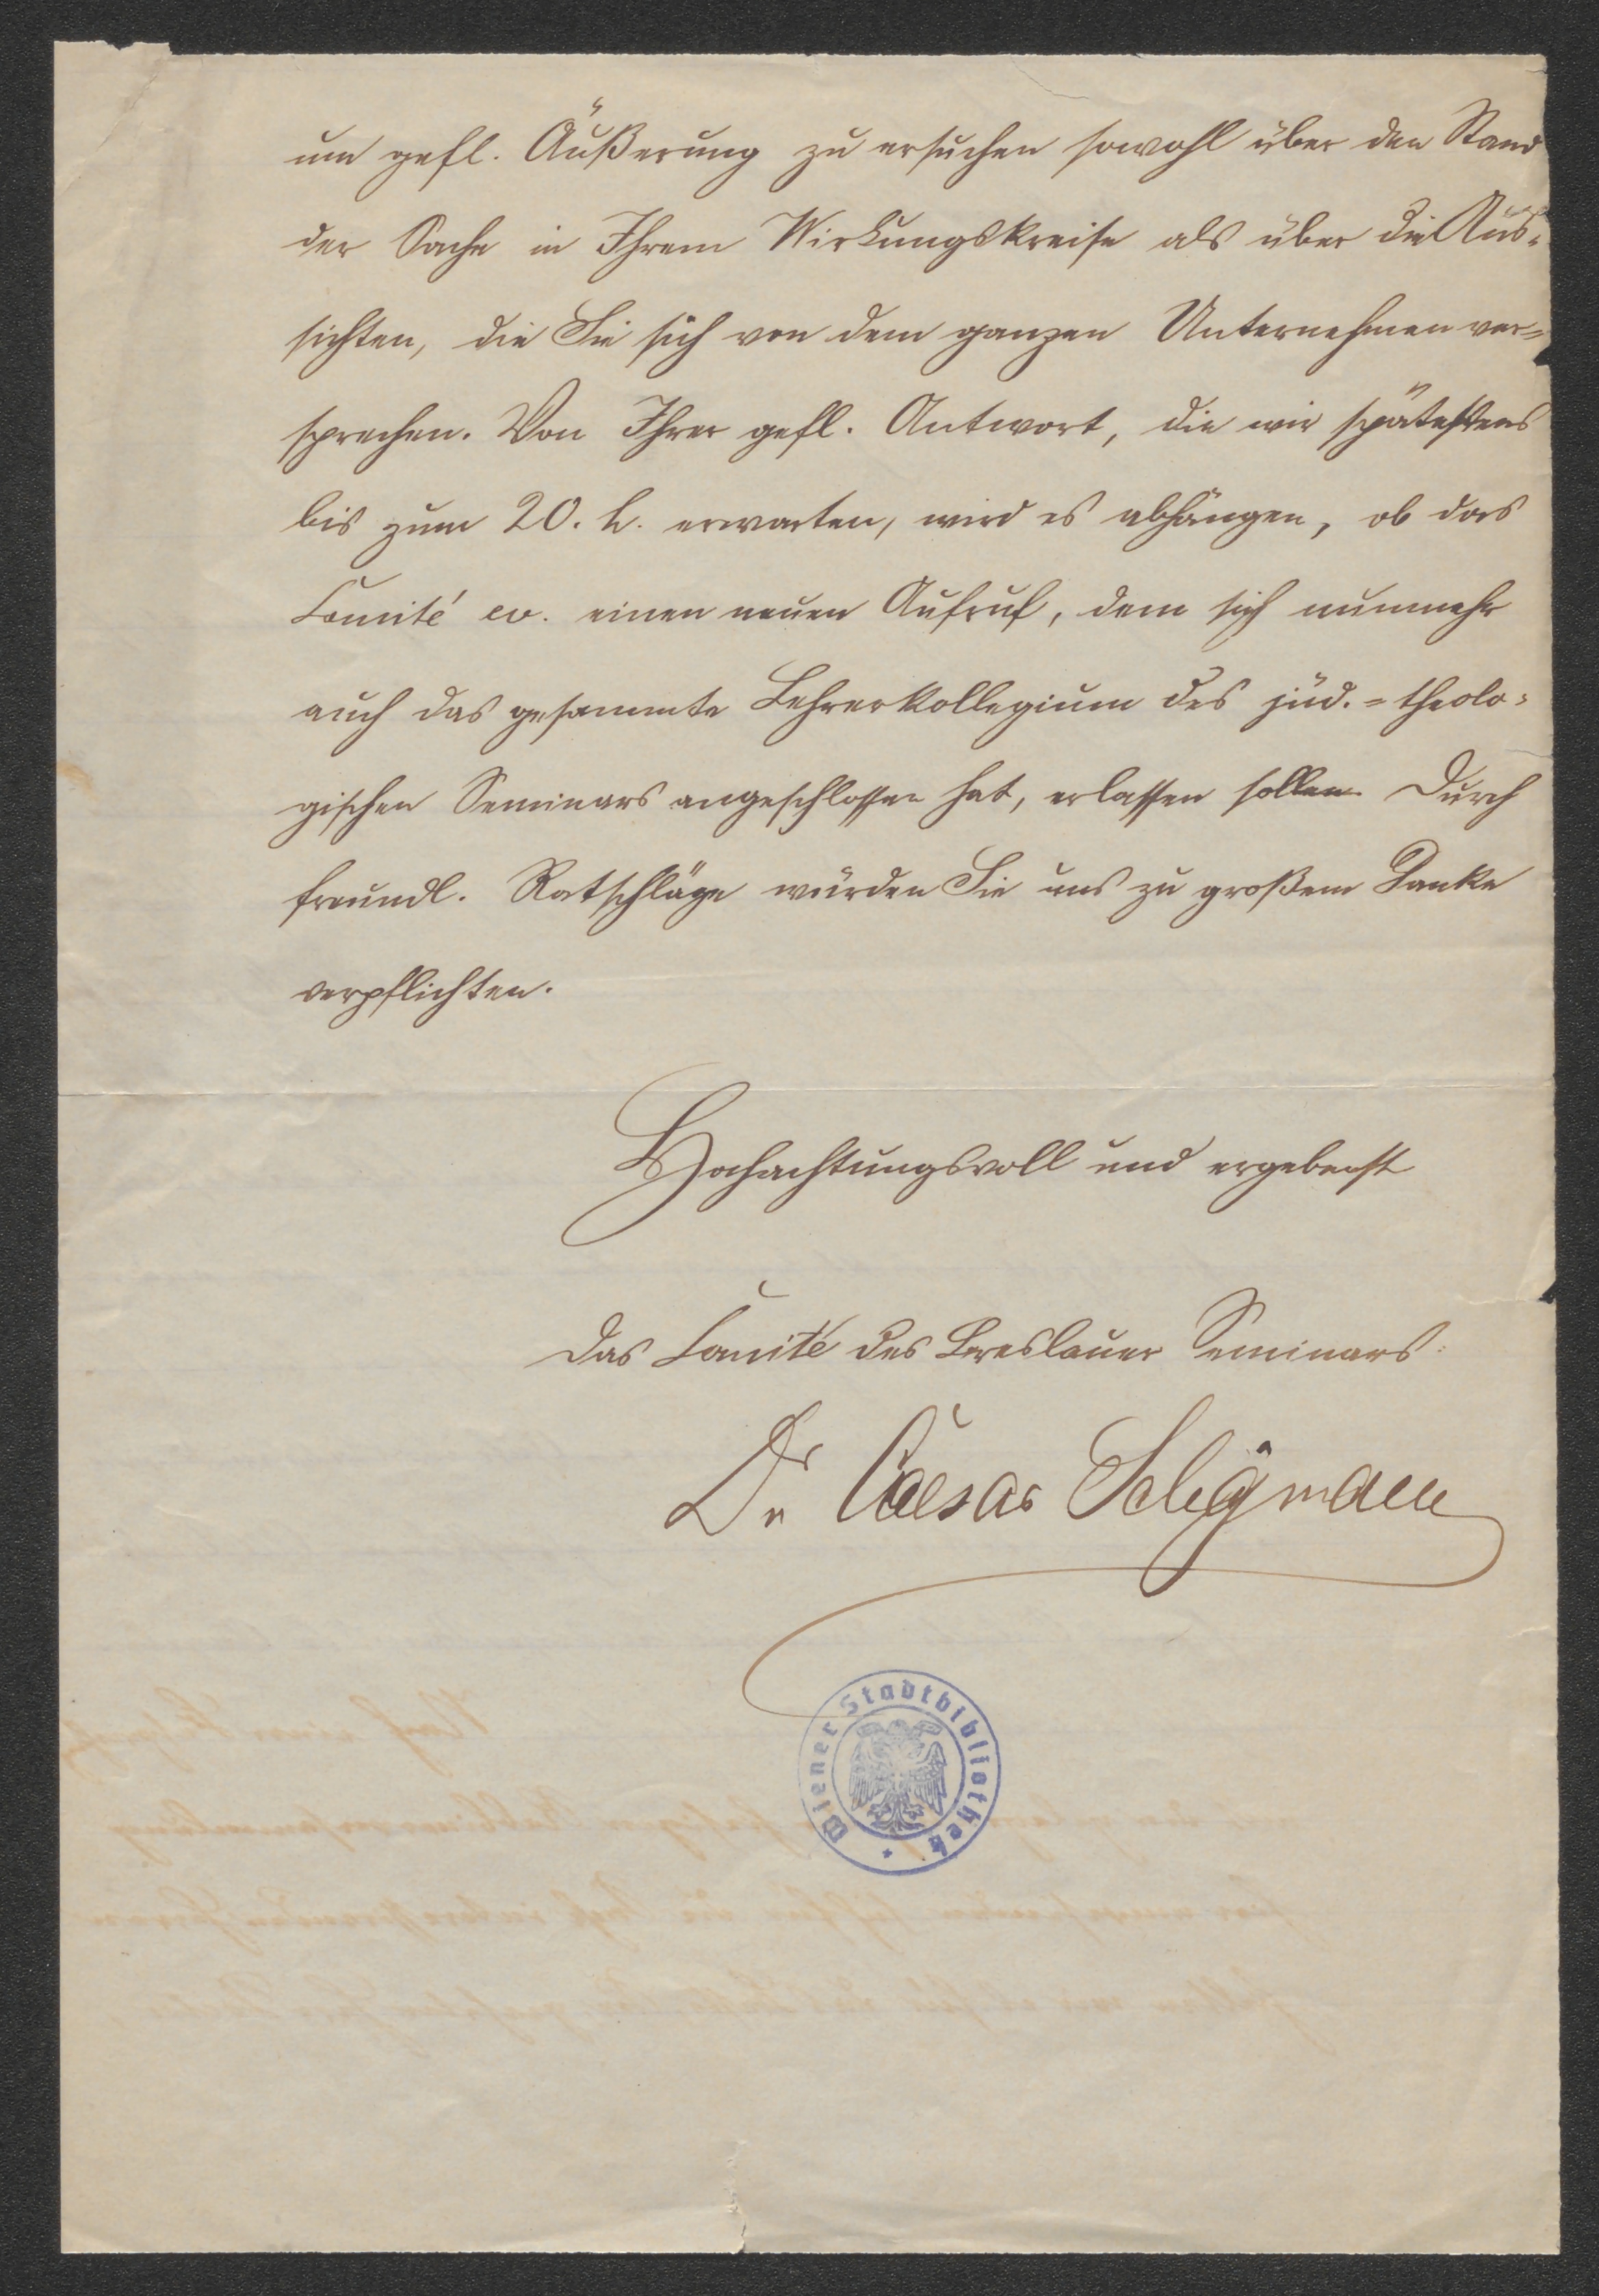 um gefl. Äußerung zu ersuchen sowohl über den Stand
der Sache in Ihrem Wirkungskreise als über die Aus-
sichten, die Sie sich von dem ganzen Unternehmen ver-
sprechen. Von Ihrer gefl. Antwort, die wir spätestens
bis zum 20. h. erwarten, wird es abhängen, ob das
Comité ev. einen neuen Aufruf, dem sich nunmehr
auch das gesammte Lehrerkollegium des jüd.-theolo-
gischen Seminars angeschlossen hat, erlassen sollen. Durch
freundl. Ratschläge würden Sie uns zu großem Danke
verpflichten.
Hochachtungsvoll und ergebenst
Das Comité des Breslauer Seminars:
Dr Caesar Seligmann
Wiener Stadtbibliothek